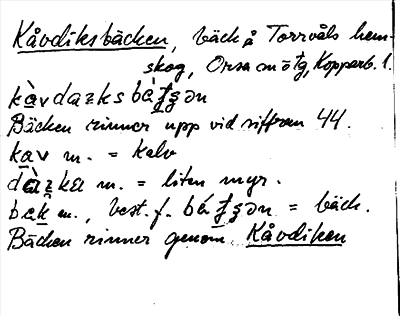 Kåvdiksbäcken, bäck å Torrvåls hem-
skog, Orsa sn ö tg, Kopparb. l.
kàvdazksbàʈʂən
Bäcken rinner upp vid siffran 44.
kav m. = kalv
dàzkɛɩ m. = liten myr.
bɛk m., best. f. báʈʂən = bäck.
Bäcken rinner genom Kåvdiken